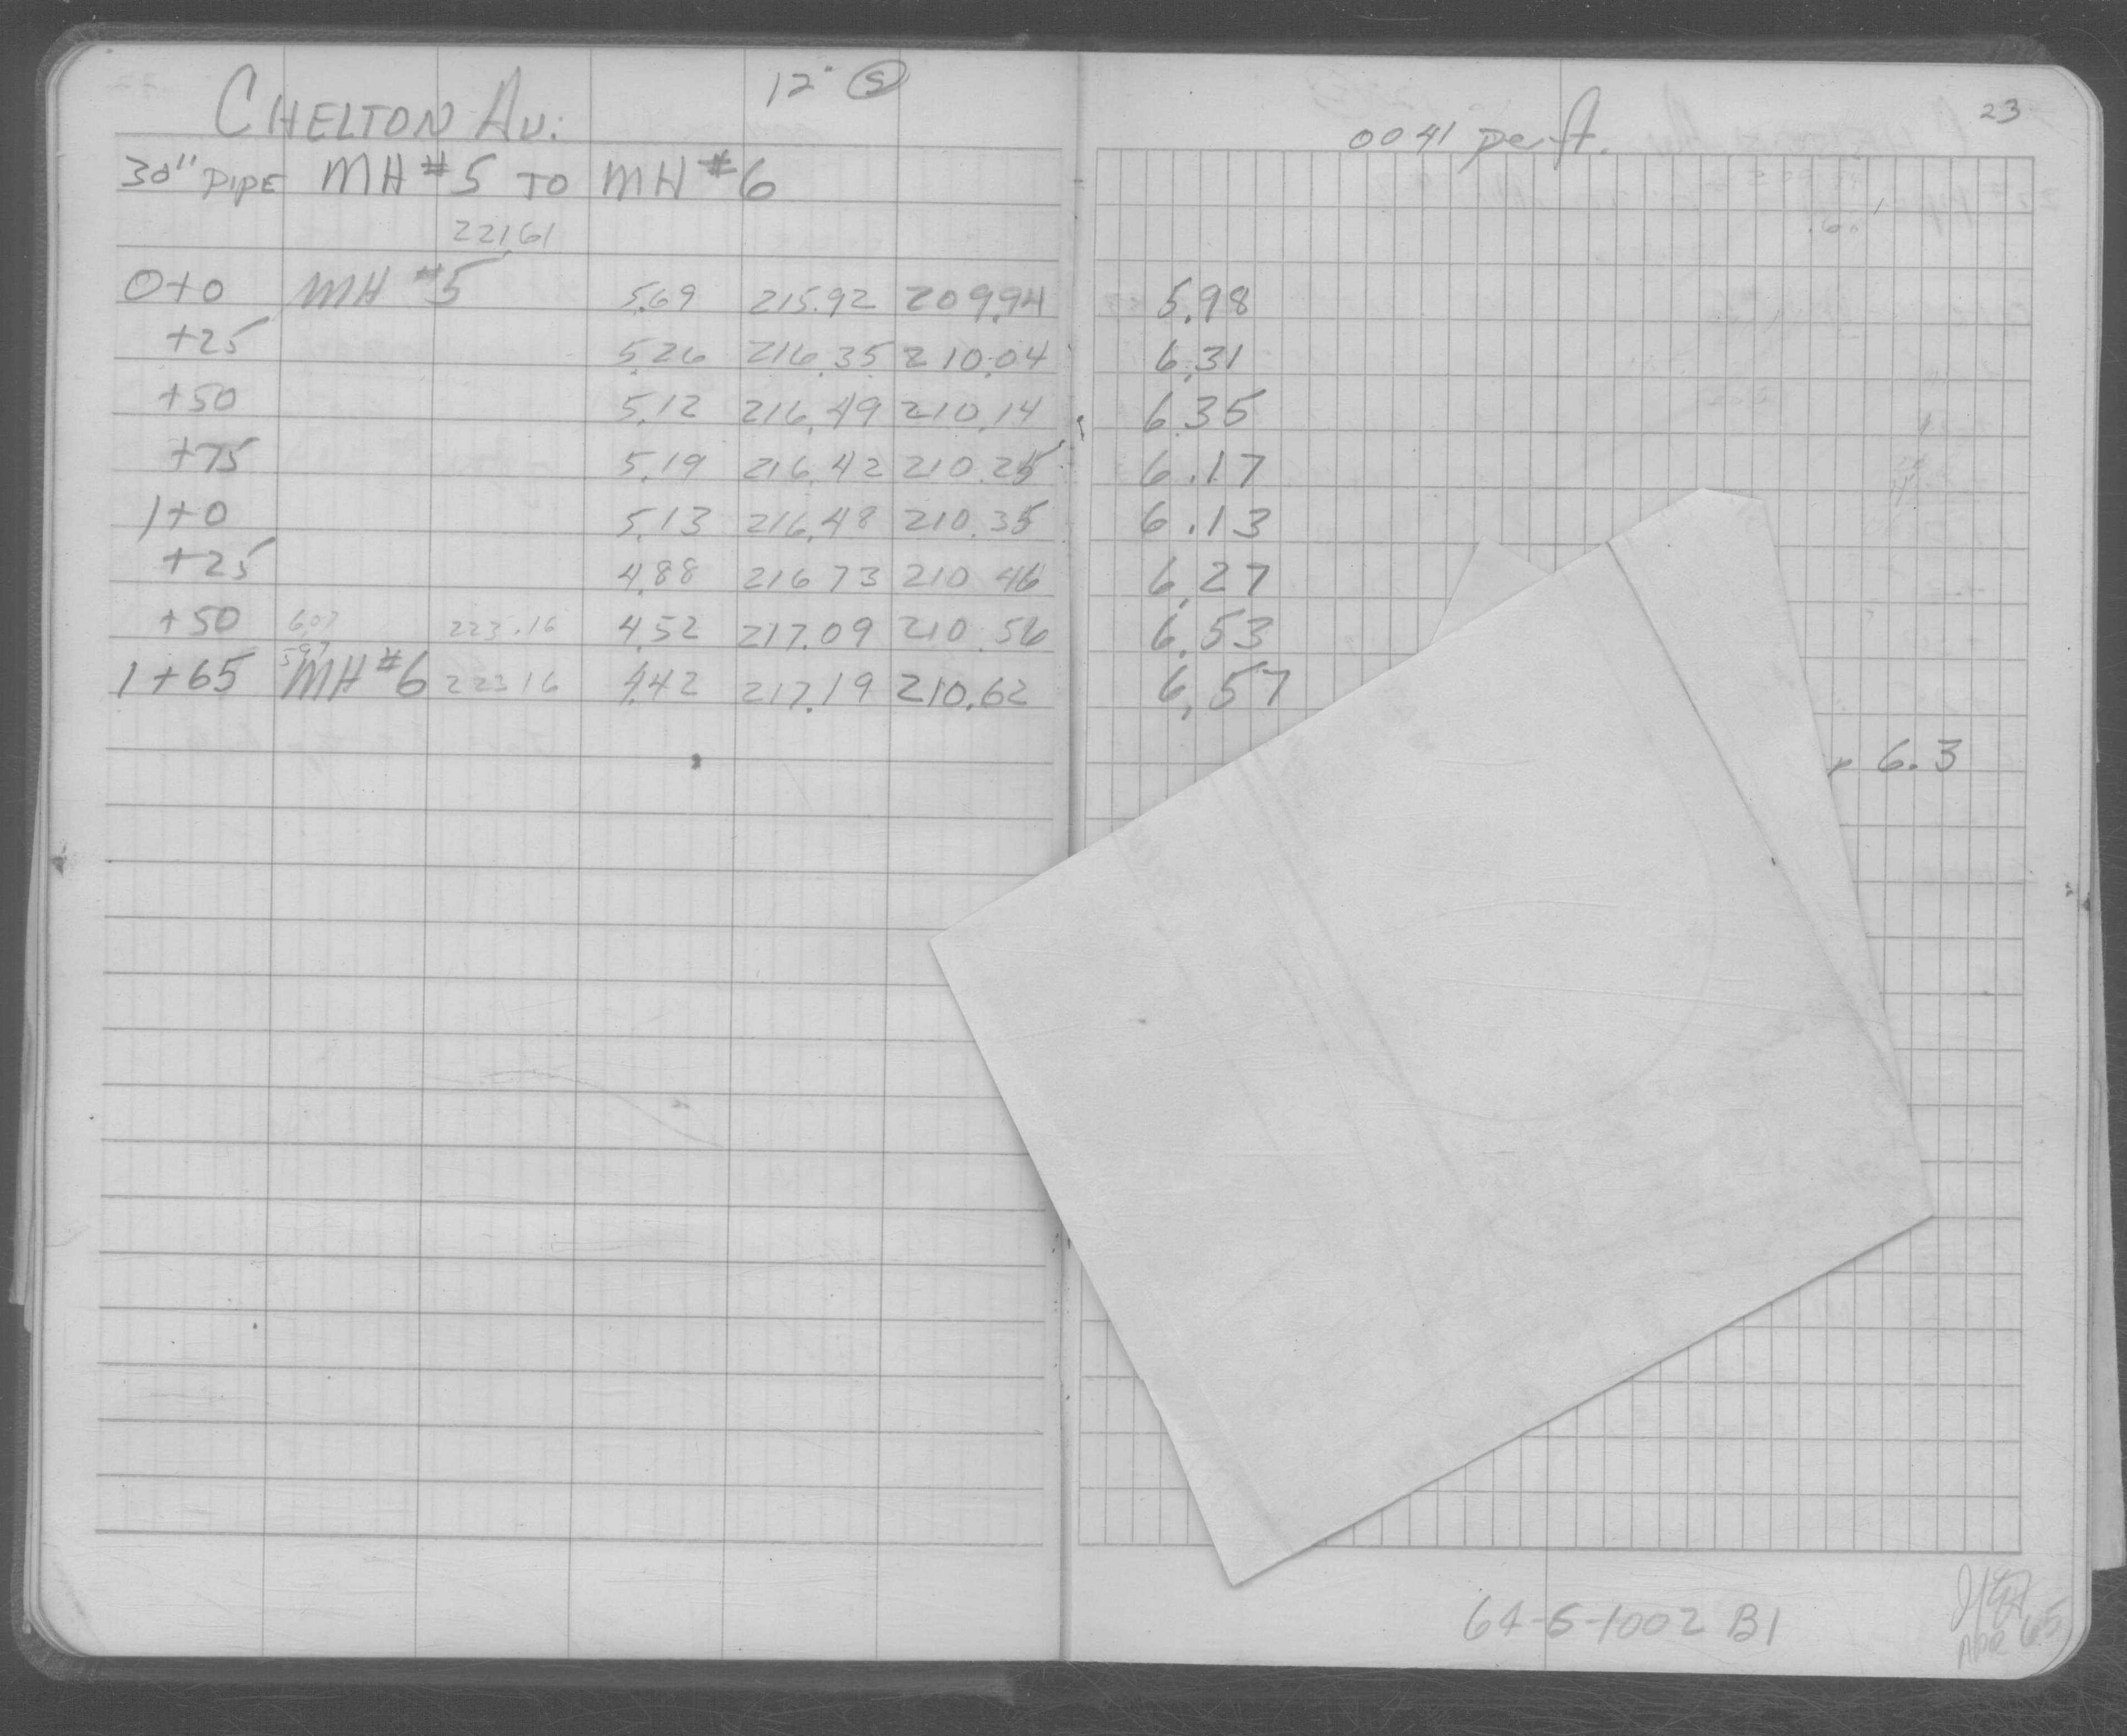 12" S
CHELTON AV.
30" PIPE MH #5 TO MH #6
221.61
0+0 MH #5 5.69 215.92 209.94
+25 5.26 216.35 210.04
+50 5.12 216.49 210.14
+75 5.19 216.42 210.25
1+0 5.13 216.48 210.35
+25 4.88 216 73 210 46
+50 607 223.16 4.52 217.09 210.56
597
1+65 MH #6 223 16 4.42 217.19 210.62
23
0041 per ft.
5.98
6.31
6.35
6.17
6.13
6.27
6.53
6.57
6.3
64-S-1002 B1
APR 65